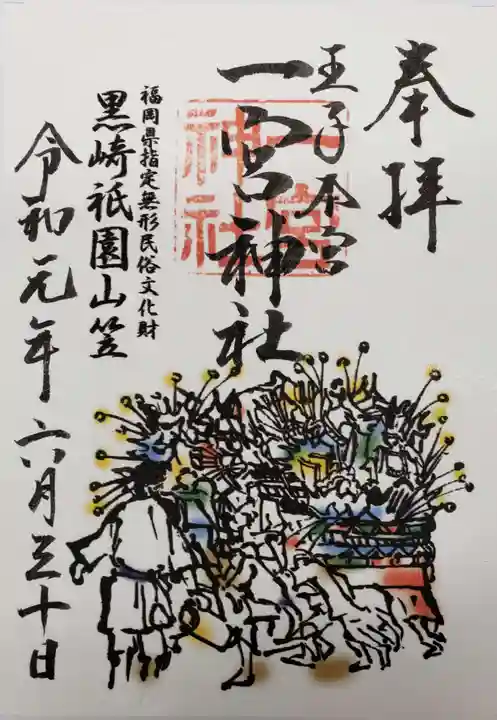 奉拝
王子本宮
一宮神社
一宮神社
福岡県指定無形民俗文化財
黒崎祇園山笠
令和元年六月三十日